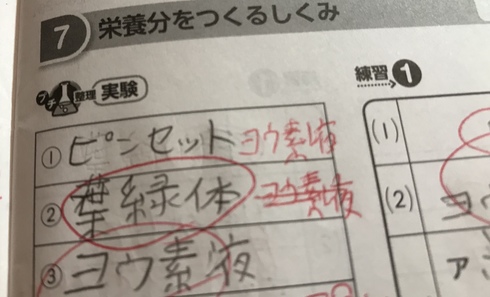 7 栄養分をつくるしくみ
プチ整理 実験
① ピンセット ヨウ素液
② 葉緑体 ヨウ素液
③ ヨウ素液
練習1
(1)
(2) ヨウ